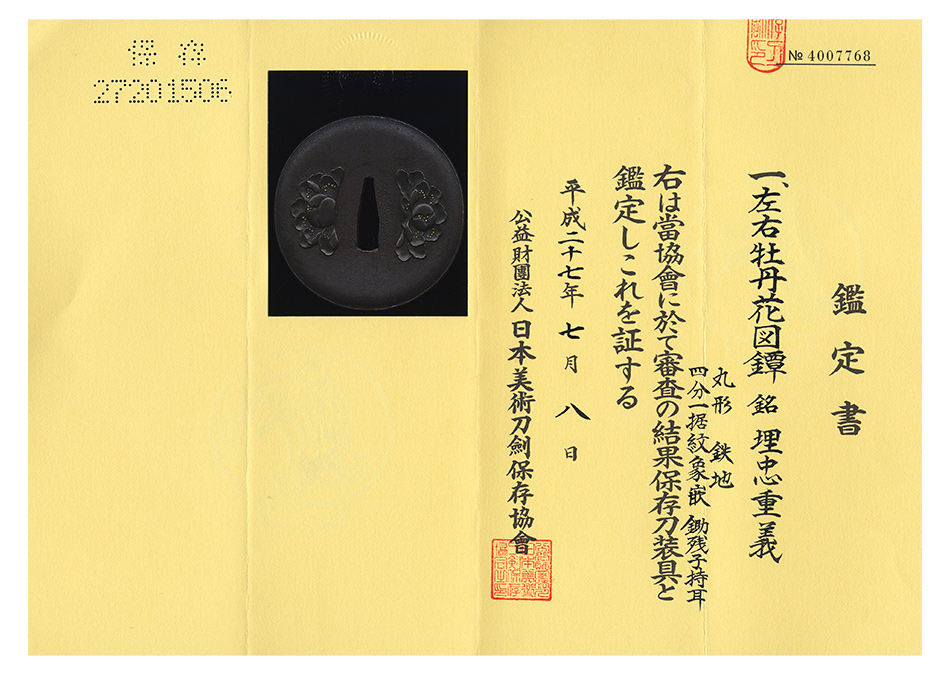 № 4007768
鑑定書
一、左右牡丹花図鐔 銘 埋忠重義
丸形 鉄地
四分一据紋象嵌 鋤残子持耳
右は當協會に於て審査の結果保存刀装具と
鑑定しこれを証する
平成二十七年 七月 八日
公益財團法人 日本美術刀劍保存協會
保存
27201506